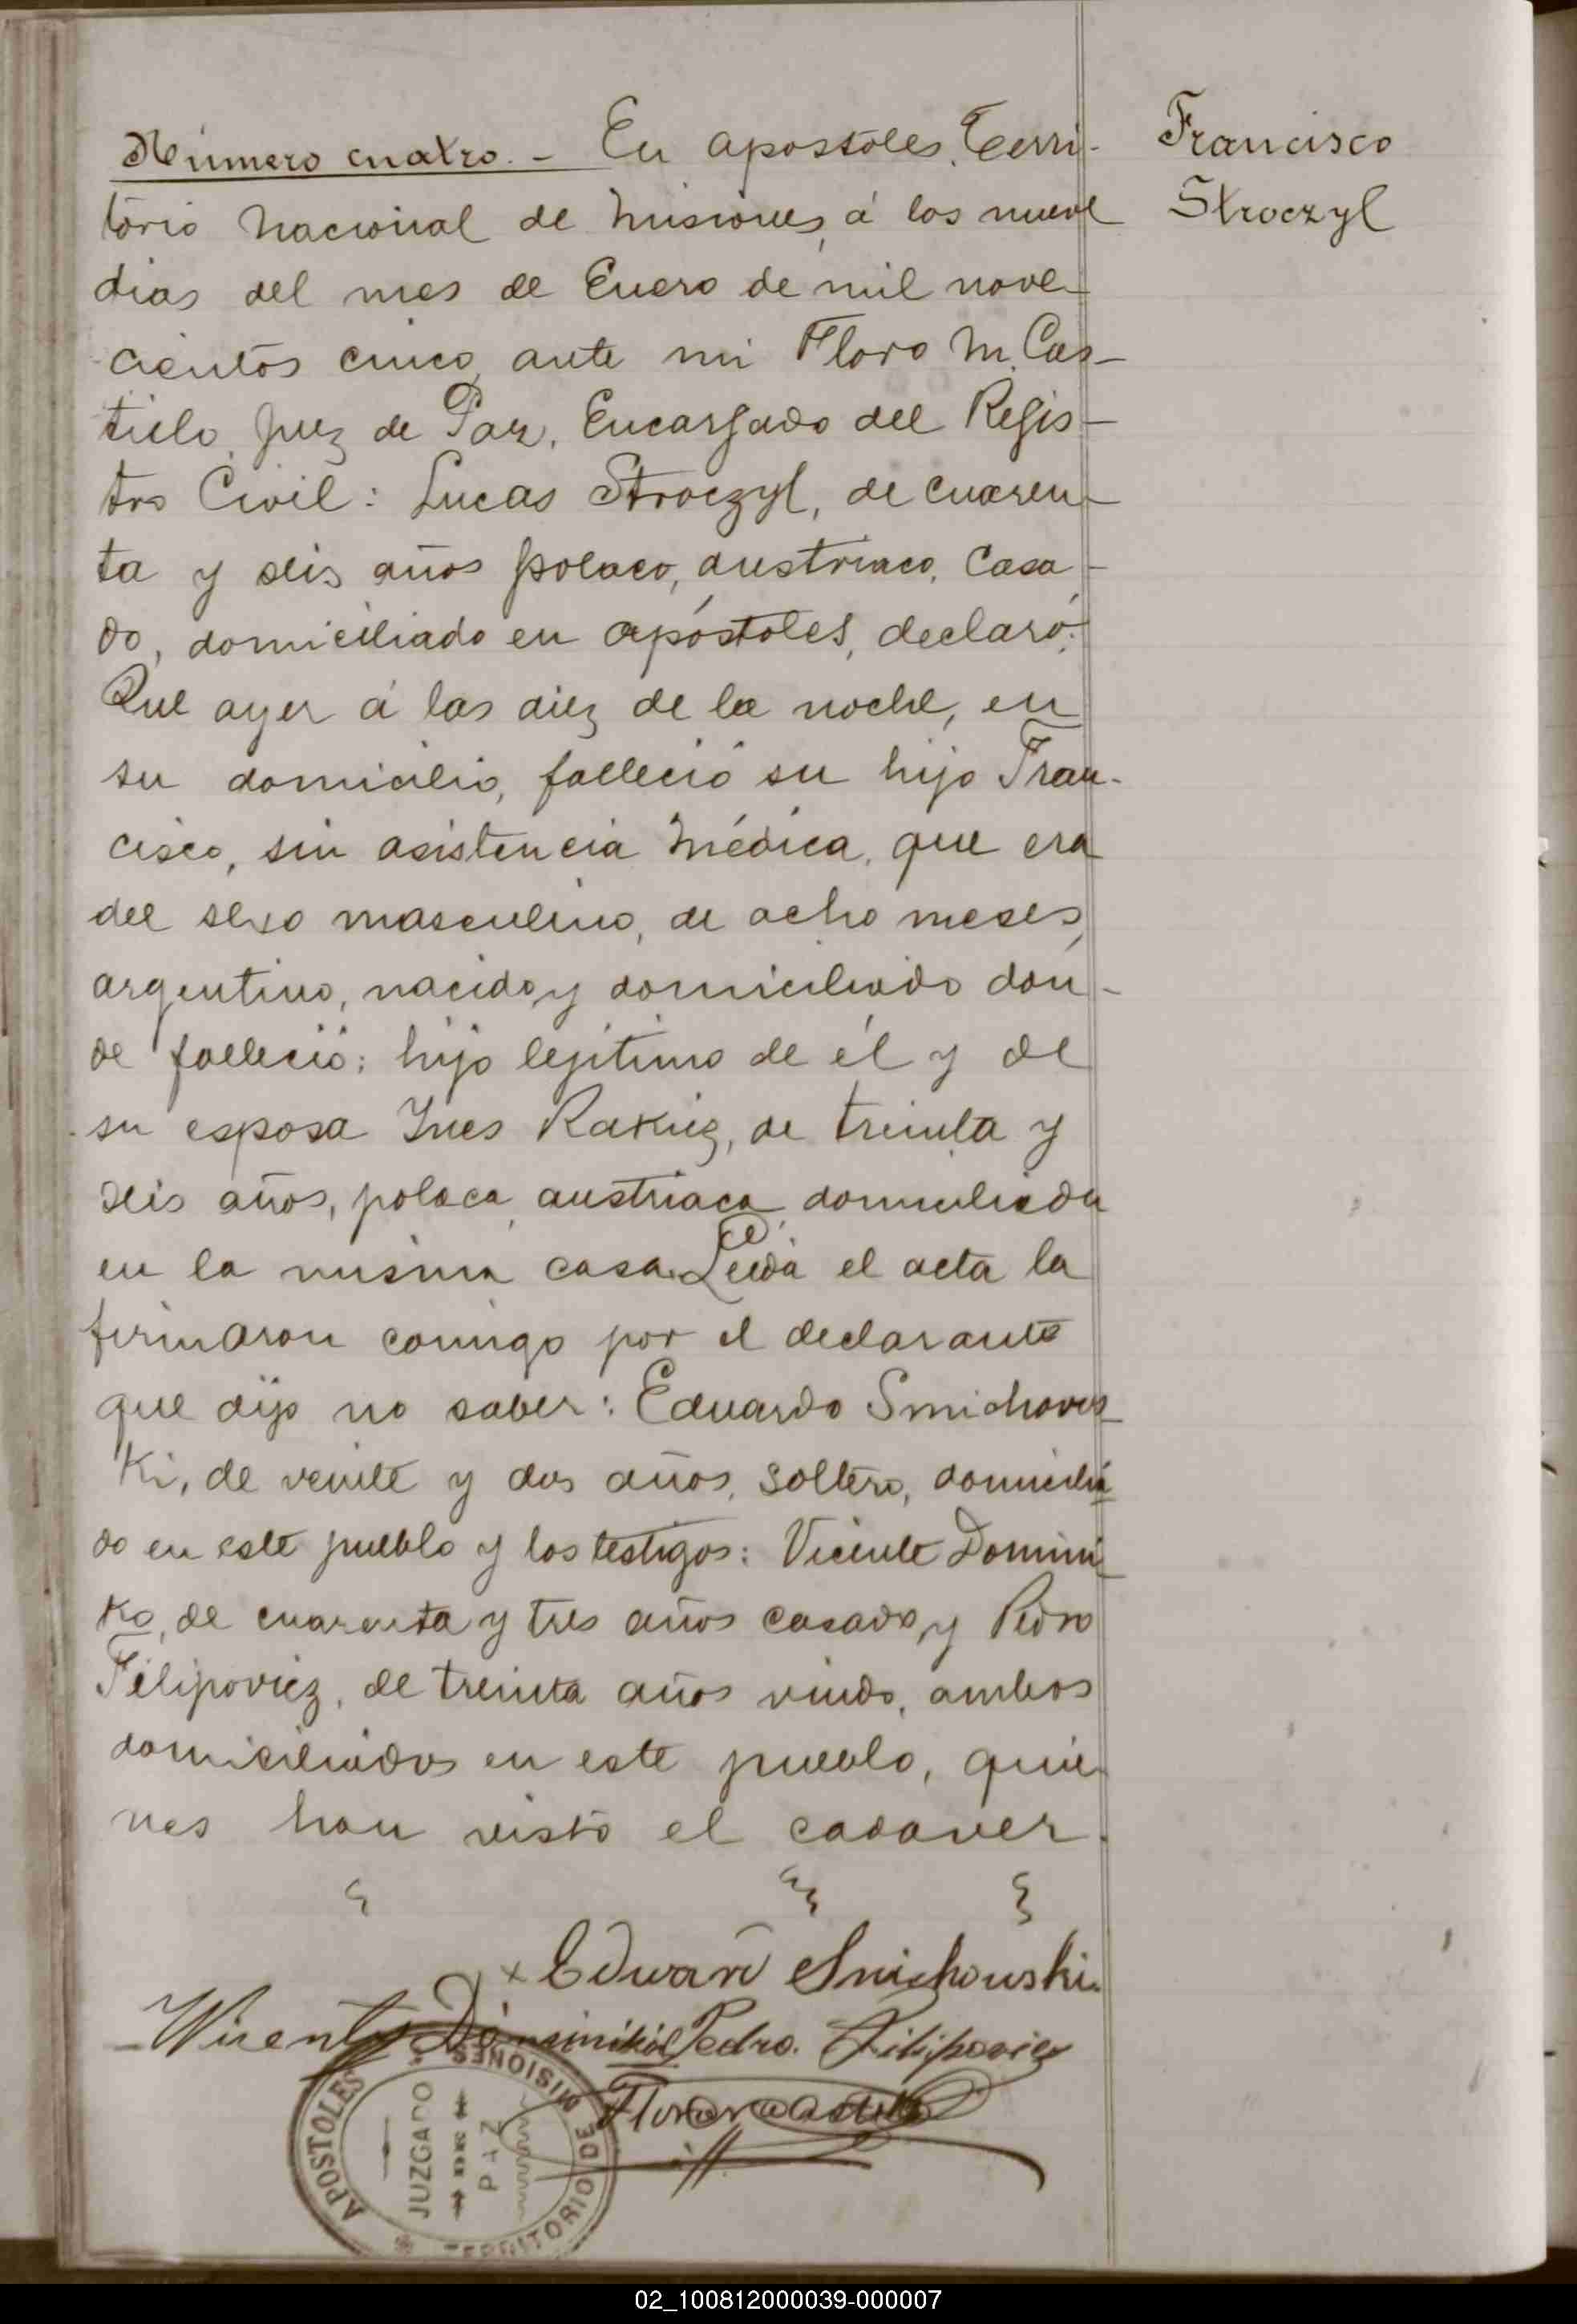 Número cuatro. - En Apostoles, Terri-
torio Nacional de Misiones, á los nueve
dias del mes de Enero de mil nove-
cientos cinco, ante mi Floro M. Cas-
tielo, Juez de Paz, Encargado del Regis-
tro Civil: Lucas Stroczyl, de cuaren-
ta y seis años polaco, austriaco, casa-
do, domiciliado en Apóstoles, declaró:
Que ayer á las diez de la noche, en
su domicilio, falleció su hijo Fran-
cisco, sin asistencia médica, que era
del sexo masculino, de ocho meses,
argentino, nacido y domiciliado don-
de falleció; hijo legitimo de él y de
su esposa Ines Rakiez, de treinta y
seis años, polaca, austriaca, domiciliada
en la misma casa. Leida el acta la
firmaron conmigo por el declarante
que dijo no saber: Eduardo Smichows-
ki, de veinte y dos años, soltero, domicilia-
do en este pueblo y los testigos: Vicente Domini-
ko, de cuarenta y tres años casado, y Pedro
Filipoviez, de treinta años viudo, ambos
domiciliados en este pueblo, quie-
nes han visto el cadaver.
Francisco
Stroczyl
x Edward Smichowski
Pedro. Filipoviez
APOSTOLES
TERRITORIO DE MISIONES
JUZGADO
DE
PAZ
02_100812000039-000007